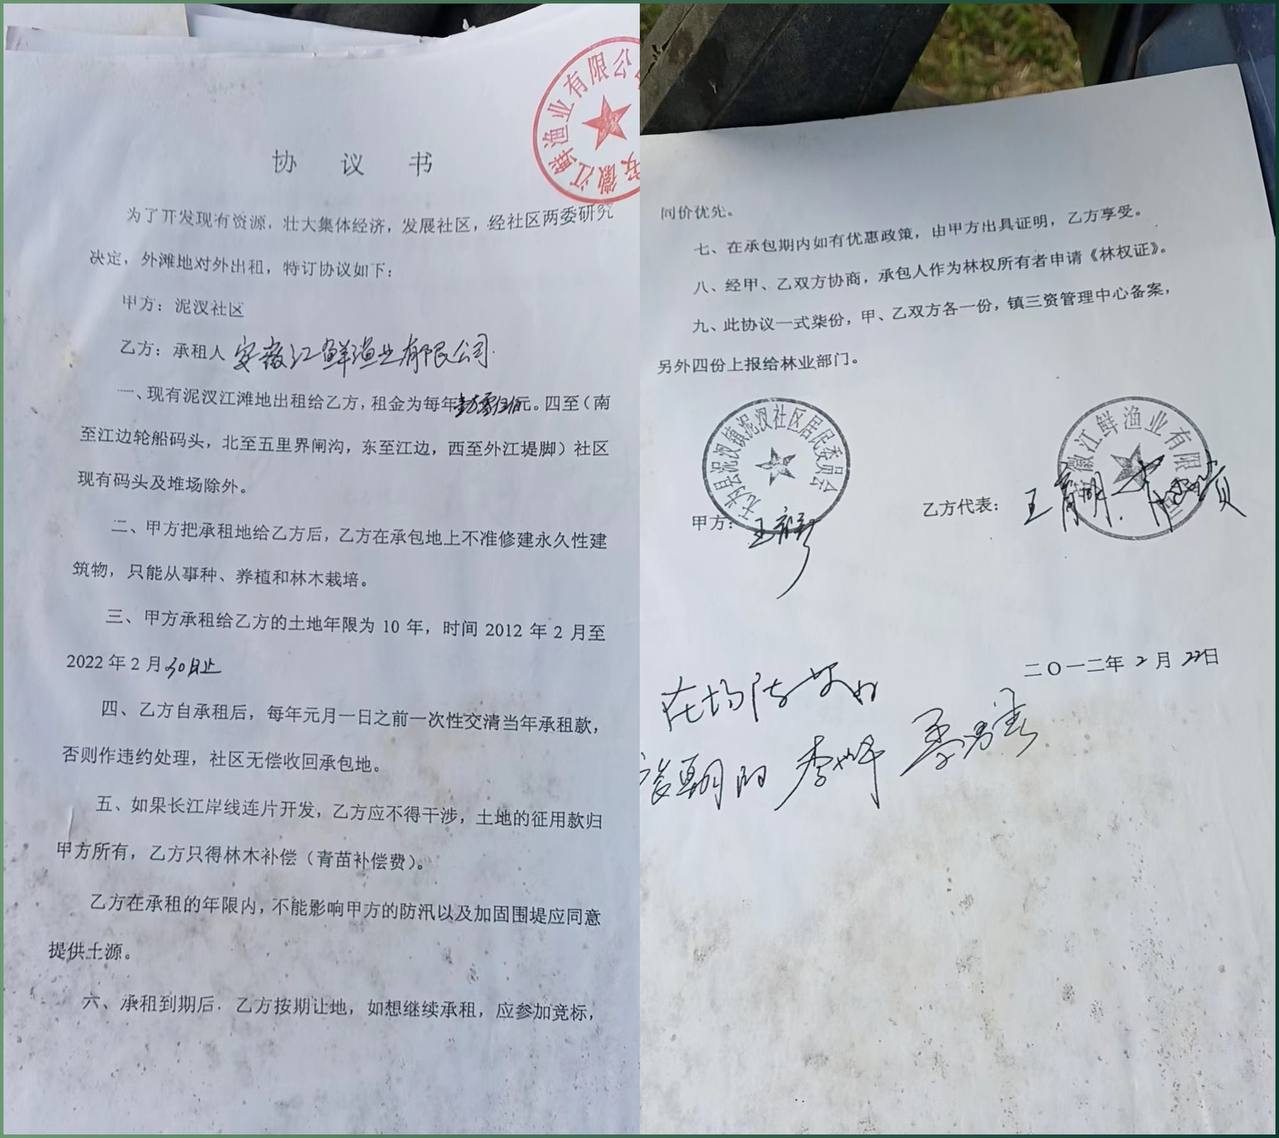 协 议 书
为了开发现有资源，壮大集体经济，发展社区，经社区两委研究
决定，外滩地对外出租，特订协议如下：
甲方：泥汊社区
乙方：承租人 安徽江鲜渔业有限公司
一、现有泥汊江滩地出租给乙方，租金为每年元。四至（南
至江边轮船码头，北至五里界闸沟，东至江边，西至外江堤脚）社区
现有码头及堆场除外。
二、甲方把承租地给乙方后，乙方在承包地上不准修建永久性建
筑物，只能从事种、养植和林木栽培。
三、甲方承租给乙方的土地年限为 10 年，时间 2012 年 2 月至
2022 年 2 月30日止
四、乙方自承租后，每年元月一日之前一次性交清当年承租款，
否则作违约处理，社区无偿收回承包地。
五、如果长江岸线连片开发，乙方应不得干涉，土地的征用款归
甲方所有，乙方只得林木补偿（青苗补偿费）。
乙方在承租的年限内，不能影响甲方的防汛以及加固围堤应同意
提供土源。
六、承租到期后．乙方按期让地，如想继续承租，应参加竞标，
安徽江鲜渔业有限公
同价优先。
七、在承包期内如有优惠政策，由甲方出具证明，乙方享受。
八、经甲、乙双方协商，承包人作为林权所有者申请《林权证》。
九、此协议一式柒份，甲、乙双方各一份，镇三资管理中心备案，
另外四份上报给林业部门。
无为县泥汊镇泥汊社区居民委员会
徽江鲜渔业有限
甲方：王
乙方代表：王
二〇一二年 2 月 22日
在场
李